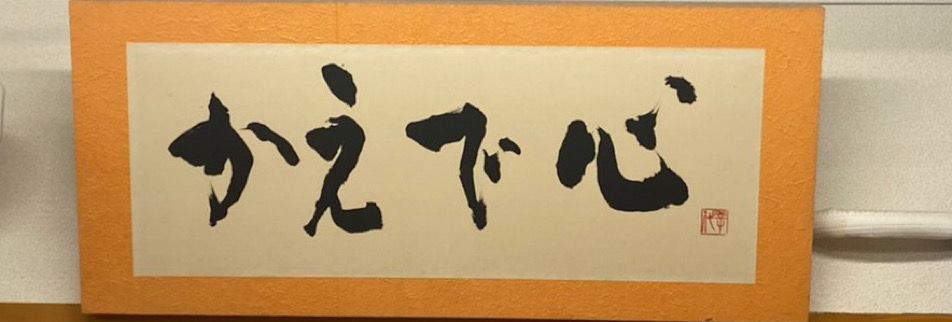 かえで心